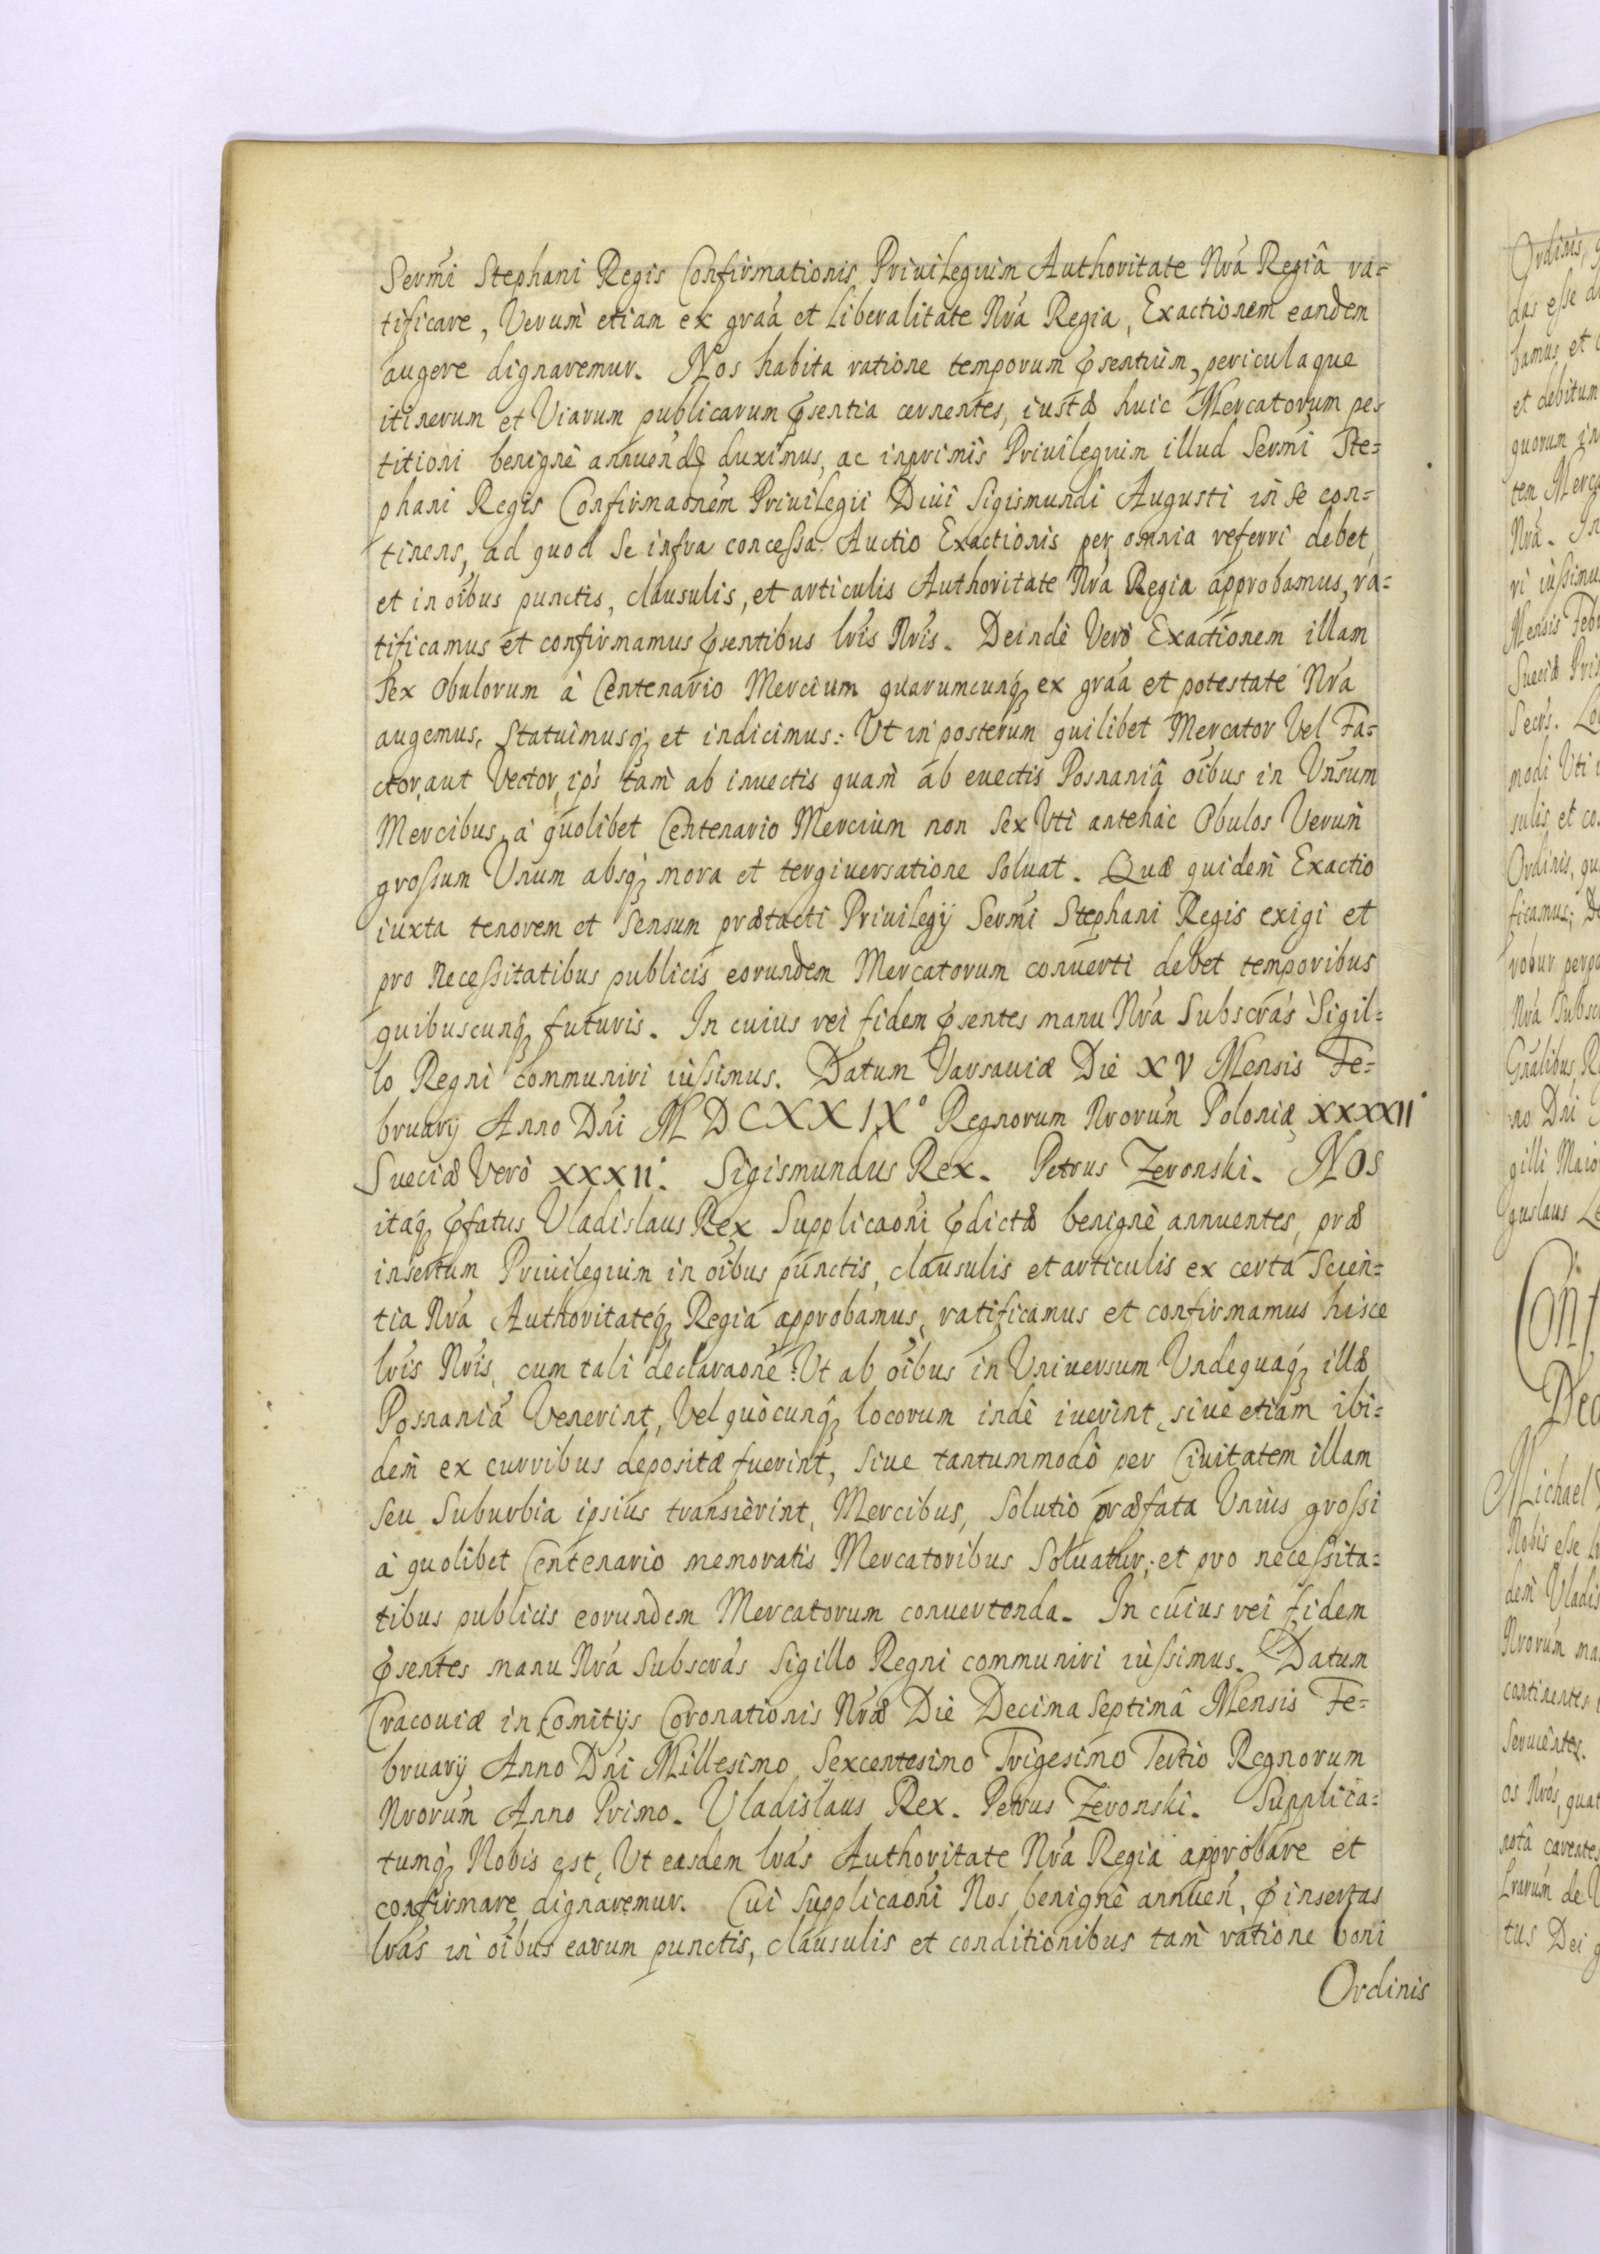 Sermi Stephani Regis Confirmationis Priuilegium Authoritate Nrá Regiâ ra=
tificare, Verum etiam ex graá et liberalitate Nrá Regia, Exactionem eandem
augere dignaremur. Nos habita ratione temporum psentium, periculaque
itinerum et Viarum publicarum psentia cernentes, iustæ huic Mercatorum pe=
titioni benignè annuendũ duximus, ac inprimis Priuilegium illud Sermi Ste=
phani Regis Confirmaoném Priuilegii Diui Sigismundi Augusti in se con=
tinens, ad quod se infra concessa Auctio Exactionis per omnia referri debet,
et in oibus punctis, clausulis, et articulis Authoritate Nrá Regia approbamus, ra=
tificamus et confirmamus psentibus lris Nris. Deindè Verò Exactionem illam
sex Obulorum à Centenario Mercium quarumcunq; ex graá et potestate Nrá
augemus, Statuimusq; et indicimus: Ut in posterum quilibet Mercator Vel Fa=
ctor, aut Vector, ips tam ab inuectis quam ab euectis Posnaniâ oibus in Unsum
Mercibus, à quolibet Centenario Mercium non sex Uti antehac Obulos Verum
grossum Unum absq; mora et tergiuersatione soluat. Quæ quidem Exactio
iuxta tenorem et sensum prætacti Priuilegij Sermi Stephani Regis exigi et
pro necessitatibus publicis eorundem Mercatorum conuerti debet temporibus
quibuscunq; futuris. In cuius rei fidem psentes manu Nrá Subscrás Sigil=
lo Regni communiri iussimus. Datum Varsauiæ Die XV Mensis Fe=
bruarij Anno Dni MDCXXIX° Regnorum Nrorum Poloniæ XXXXII°
Sueciæ Verò XXXII°. Sigismundus Rex. Petrus Zeronski. NOS
itaq; pfatus Vladislaus Rex Supplicaoni pdictæ benignè annuentes, præ
insertum Priuilegium in oibus punctis, clausulis et articulis ex certa Scien=
tia Nrá Authoritateq; Regiá approbamus, ratificamus et confirmamus hisce
lris Nris, cum tali declaraone: Ut ab oibus in Uniuersum Undequaq; illæ
Posnaniá Venerint, Vel quòcunq; locorum indè iuerint, siue etiam ibi=
dem ex curribus depositæ fuerint, siue tantummodò per Ciuitatem illam
seu Suburbia ipsius transièrint, Mercibus, Solutio præfata Unius grossi
à quolibet Centenario memoratis Mercatoribus Soluatur, et pro necessita=
tibus publicis eorundem Mercatorum conuertenda. In cuius rei fidem
psentes manu Nrá Subscrás Sigillo Regni communiri iussimus. Datum
Cracouiæ in Comitijs Coronationis Nræ Die Decima Septimâ Mensis Fe=
bruarij Anno Dni Millesimo Sexcentesimo Trigesimo Tertio Regnorum
Nrorum Anno Primo. Vladislaus Rex. Petrus Zeronski. Supplica=
tumq; Nobis est, Ut easdem lrás Authoritate Nrá Regia approbare et
confirmare dignaremur. Cui Supplicaoni Nos benignè annuen, pinsertas
lrás in oibus earum punctis, clausulis et conditionibus tam ratione boni
Ordinis